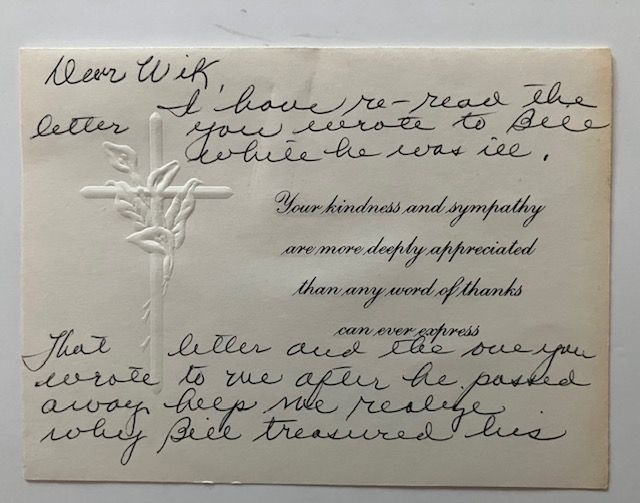 Dear Wik,
I have re-read the
letter you wrote to Bill
while he was ill.
Your kindness and sympathy
are more deeply appreciated
than any word of thanks
can ever express
That letter and the one you
wrote to me after he passed
away help me realize
why Bill treasured his